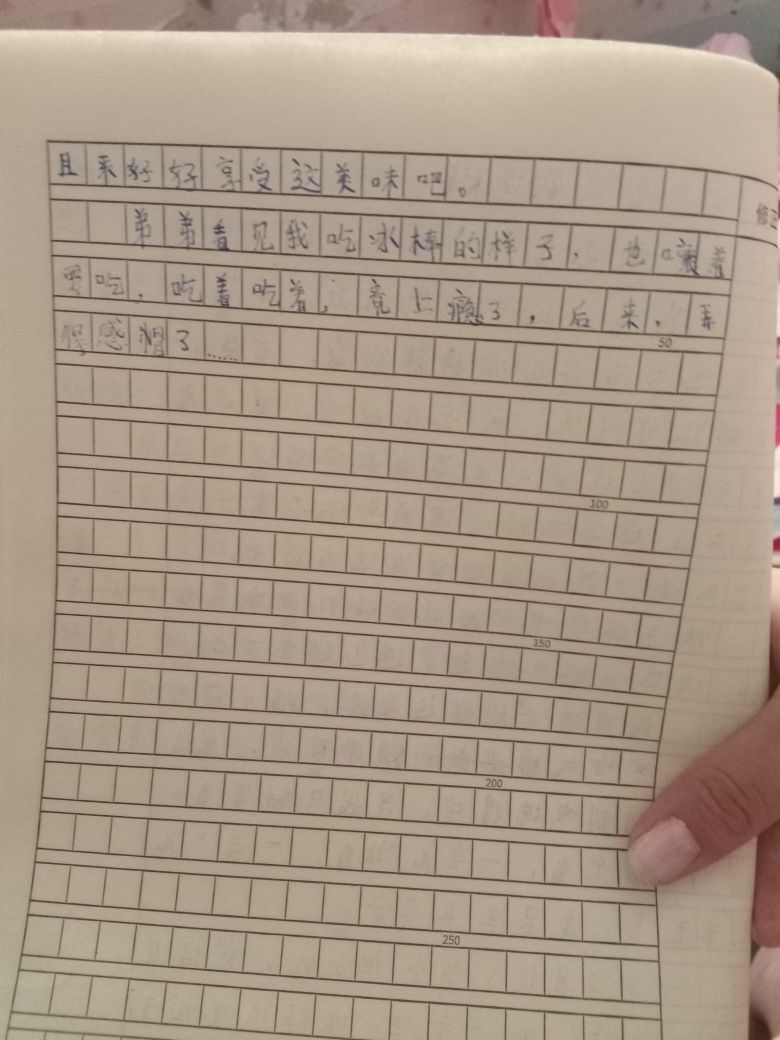 且来好好享受这美味吧。
弟弟看见我吃冰棒的样子，也嚷着
要吃，吃着吃着，竟上瘾了，后来，弄
得感冒了……
50
100
150
200
250
修正